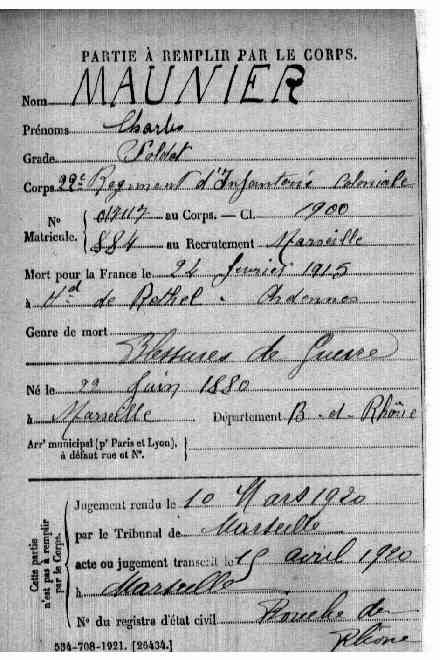 PARTIE À REMPLIR PAR LE CORPS.
Nom MAUNIER
Prénoms Charles
Grade Soldat
Corps 22e Régiment d'Infanterie Coloniale
N° Matricule. { 01717 au Corps. — Cl. 1900
884 au Recrutement Marseille
Mort pour la France le 22 février 1915
à Hal de Rethel - Ardennes
Genre de mort
Blessures de Guerre
Né le 22 Juin 1880
à Marseille Département B-d-Rhône
Arr<sup>t</sup> municipal (p<sup>r</sup> Paris et Lyon), à défaut rue et N°.
Cette partie n'est pas à remplir par le Corps.
Jugement rendu le 10 Mars 1920
par le Tribunal de Marseille
acte ou jugement transcrit le 15 avril 1920
à Marseille
N° du registre d'état civil Bouche du
Rhône
534-708-1921. [26434.]